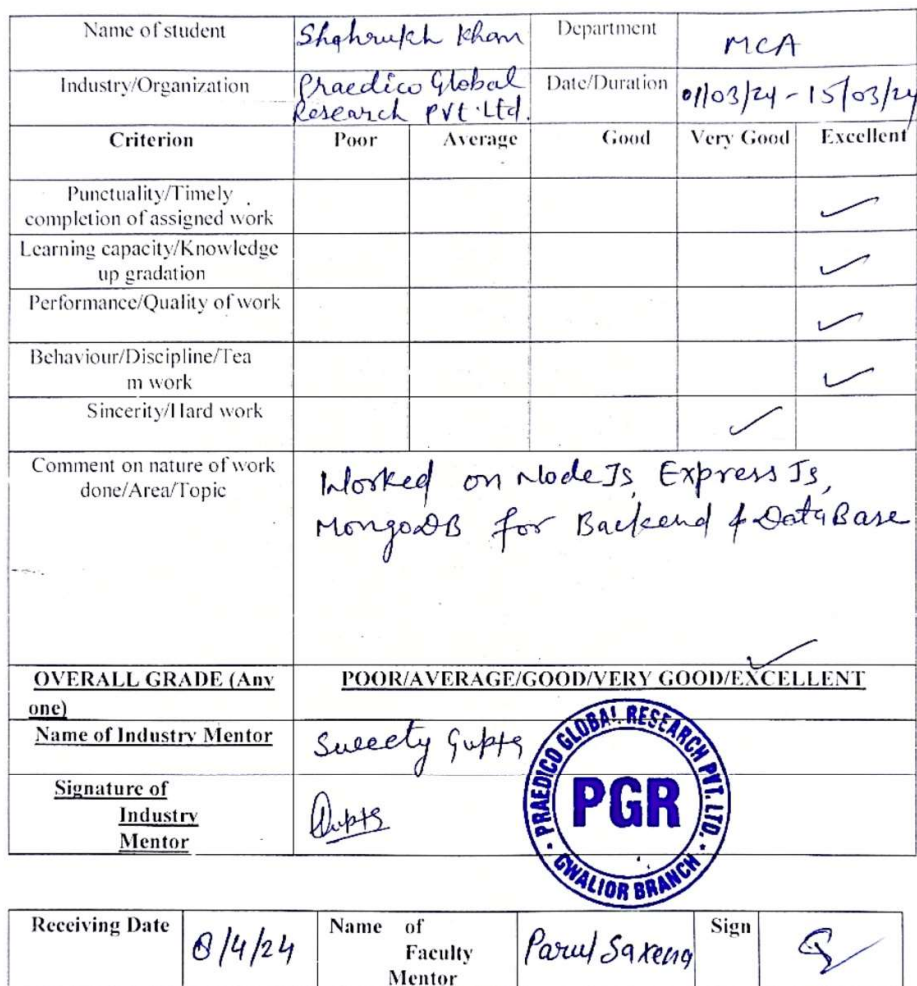 Name of student Shahrukh Khan Department MCA
Industry/Organization Praedico Global Date/Duration 01/03/24 - 15/03/24
Research Pvt. Ltd.
Criterion Poor Average Good Very Good Excellent
Punctuality/Timely
completion of assigned work ✓
Learning capacity/Knowledge
up gradation ✓
Performance/Quality of work ✓
Behaviour/Discipline/Tea
m work ✓
Sincerity/Hard work ✓
Comment on nature of work
done/Area/Topic
Worked on Node Js, Express Js,
MongoDB for Backend & DataBase
✓
OVERALL GRADE (Any POOR/AVERAGE/GOOD/VERY GOOD/EXCELLENT
one)
Name of Industry Mentor Sweety Gupta
Signature of
Industry
Mentor
Gupta
PRAEDICO GLOBAL RESEARCH PVT. LTD.
PGR
GWALIOR BRANCH
Receiving Date 8/4/24 Name of
Faculty
Mentor
Parul Saxena Sign